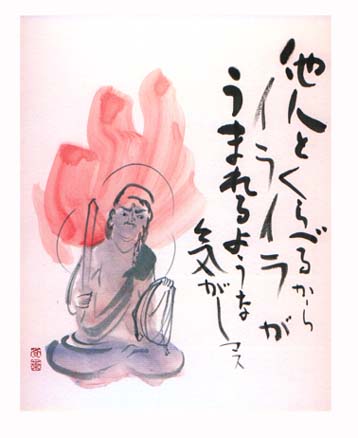 他人とくらべるから
イライラが
うまれるような
気がしマス